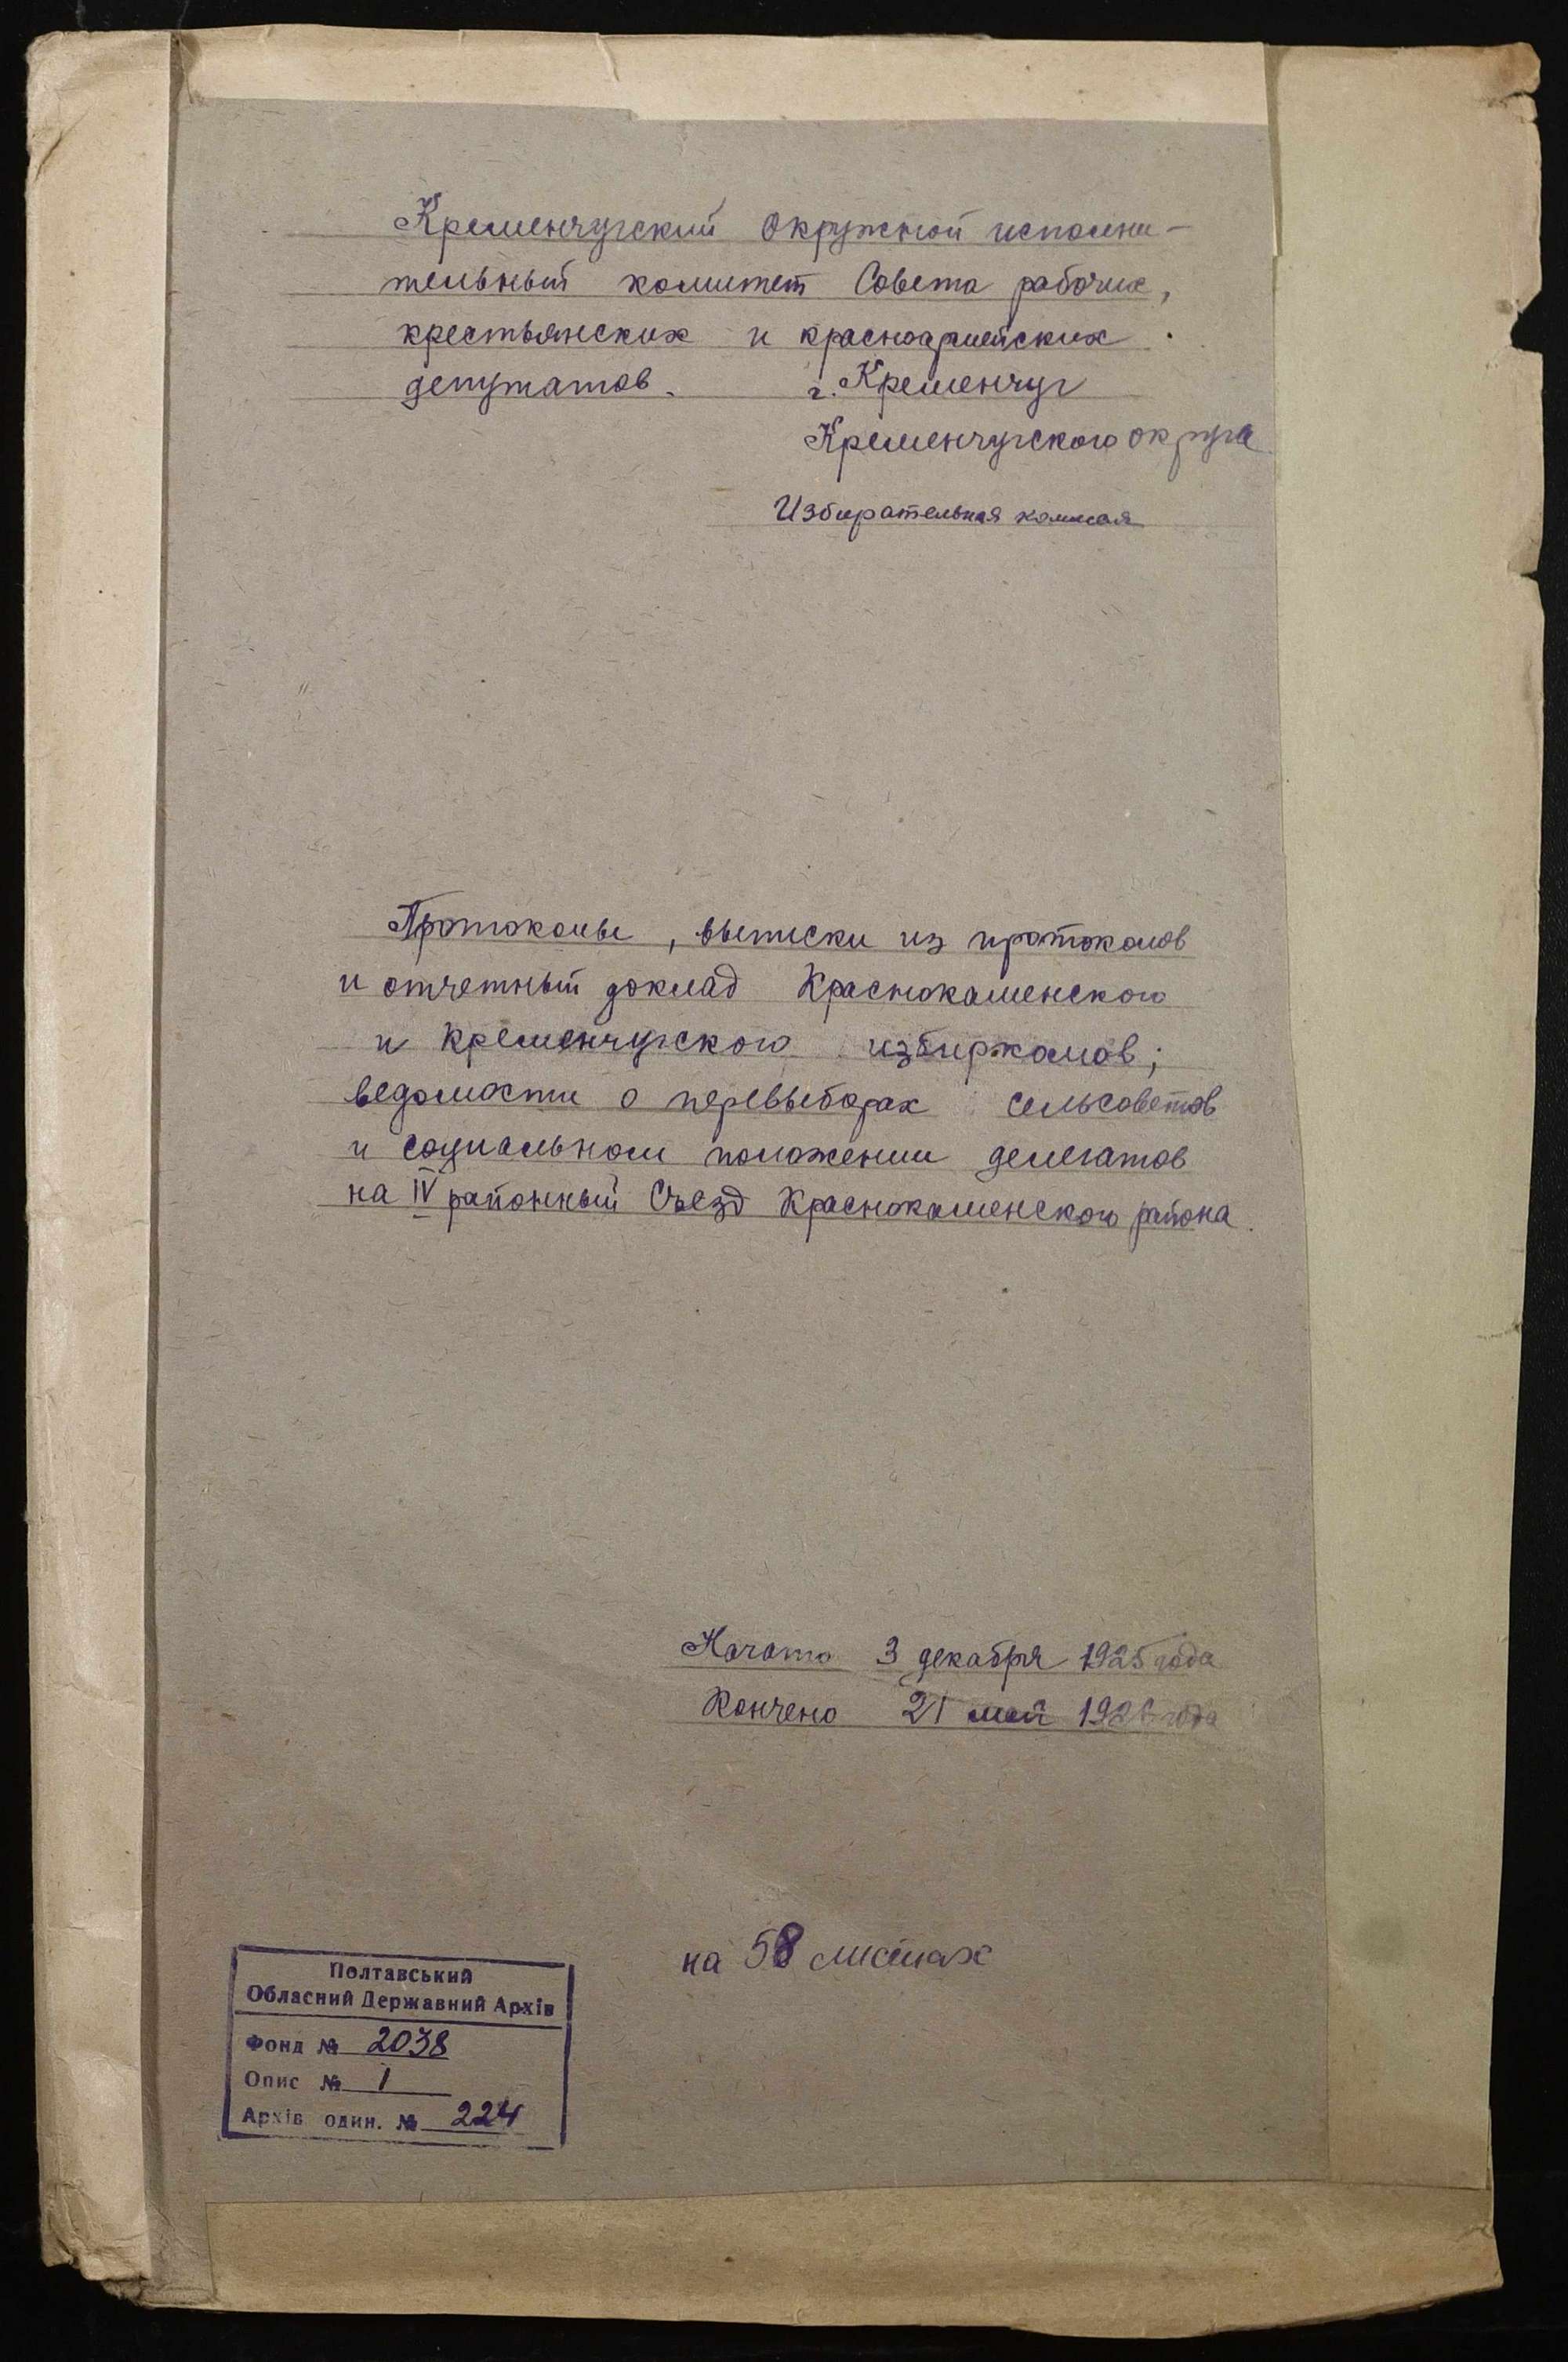 Кременчугский Окружной исполни-
тельный комитет Совета рабочих,
крестьянских и красноармейских
депутатов. г. Кременчуг
Кременчугского округа
Избирательная
Протоколы, выписки из протоколов
и отчетный доклад Краснокаменского
и Кременчугского избиркомов;
ведомости о перевыборах сельсоветов
и социальном положении делегатов
на IV районный Съезд Краснокаменского района.
Начато 3 декабря 1925 года
Кончено 21 мая 1926 года
на 58 листах
Полтавський
Обласний Державний Архів
Фонд № 2038
Опис № 1
Архів один. № 224